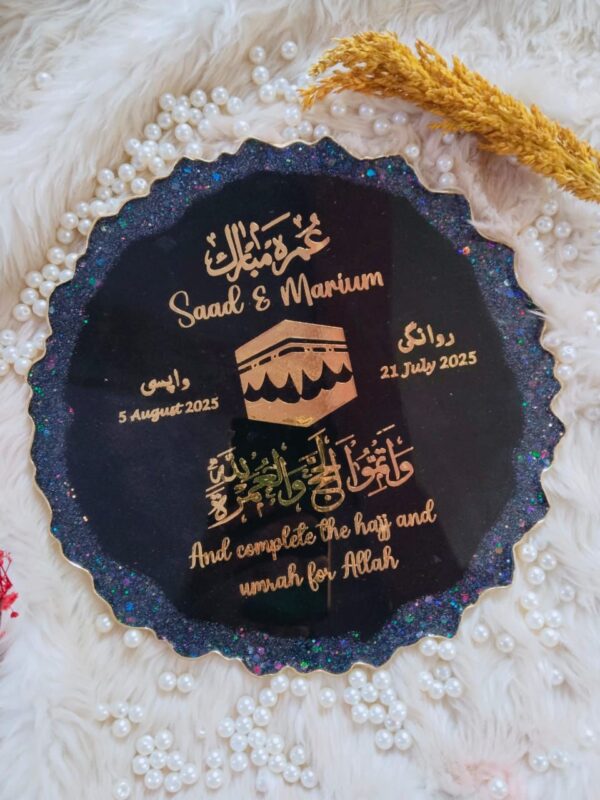 عُمرَہ مُبَارَك
Saad & Marium
روانگی
21 July 2025
واپسی
5 August 2025
وَاَتِمُّوا الْحَجَّ وَالْعُمْرَةَ لِلّٰهِ
And complete the hajj and
umrah for Allah